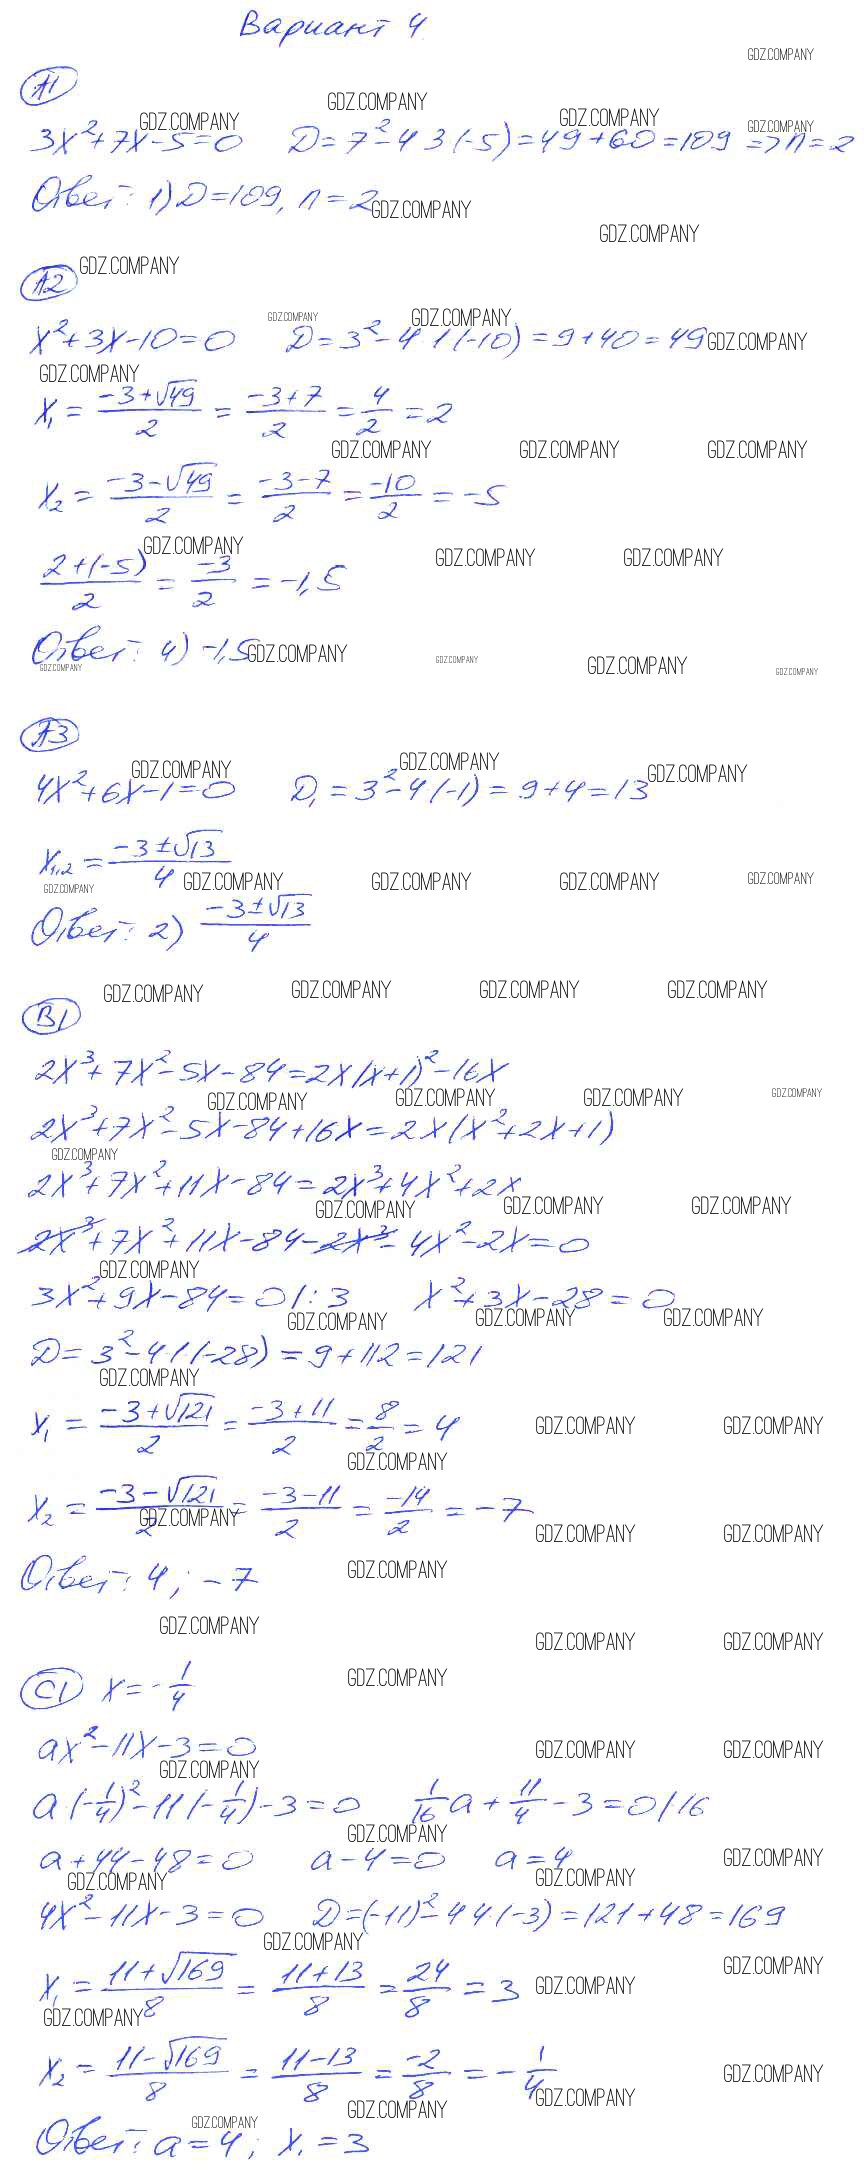 Вариант 4
А1
3x²+7x-5=0 D=7²-4·3·(-5)=49+60=109 => n=2
Ответ: 1) D=109, n=2
А2
x²+3x-10=0 D=3²-4·1·(-10)=9+40=49
x₁ = (-3+√49)/2 = (-3+7)/2 = 4/2 = 2
x₂ = (-3-√49)/2 = (-3-7)/2 = -10/2 = -5
(2+(-5))/2 = -3/2 = -1,5
Ответ: 4) -1,5
А3
4x²+6x-1=0 D₁ = 3²-4·(-1) = 9+4=13
x₁,₂ = (-3±√13)/4
Ответ: 2) (-3±√13)/4
В1
2x³+7x²-5x-84=2x(x+1)²-16x
2x³+7x²-5x-84+16x=2x(x²+2x+1)
2x³+7x²+11x-84=2x³+4x²+2x
2x³+7x²+11x-84-2x³-4x²-2x=0
3x²+9x-84=0 /:3 x²+3x-28=0
D=3²-4·1·(-28)=9+112=121
x₁ = (-3+√121)/2 = (-3+11)/2 = 8/2 = 4
x₂ = (-3-√121)/2 = (-3-11)/2 = -14/2 = -7
Ответ: 4; -7
С1 x=-1/4
ax²-11x-3=0
a·(-1/4)²-11·(-1/4)-3=0 1/16a+11/4-3=0 /·16
a+44-48=0 a-4=0 a=4
4x²-11x-3=0 D=(-11)²-4·4·(-3)=121+48=169
x₁ = (11+√169)/8 = (11+13)/8 = 24/8 = 3
x₂ = (11-√169)/8 = (11-13)/8 = -2/8 = -1/4
Ответ: a=4; x₁=3
GDZ.COMPANY